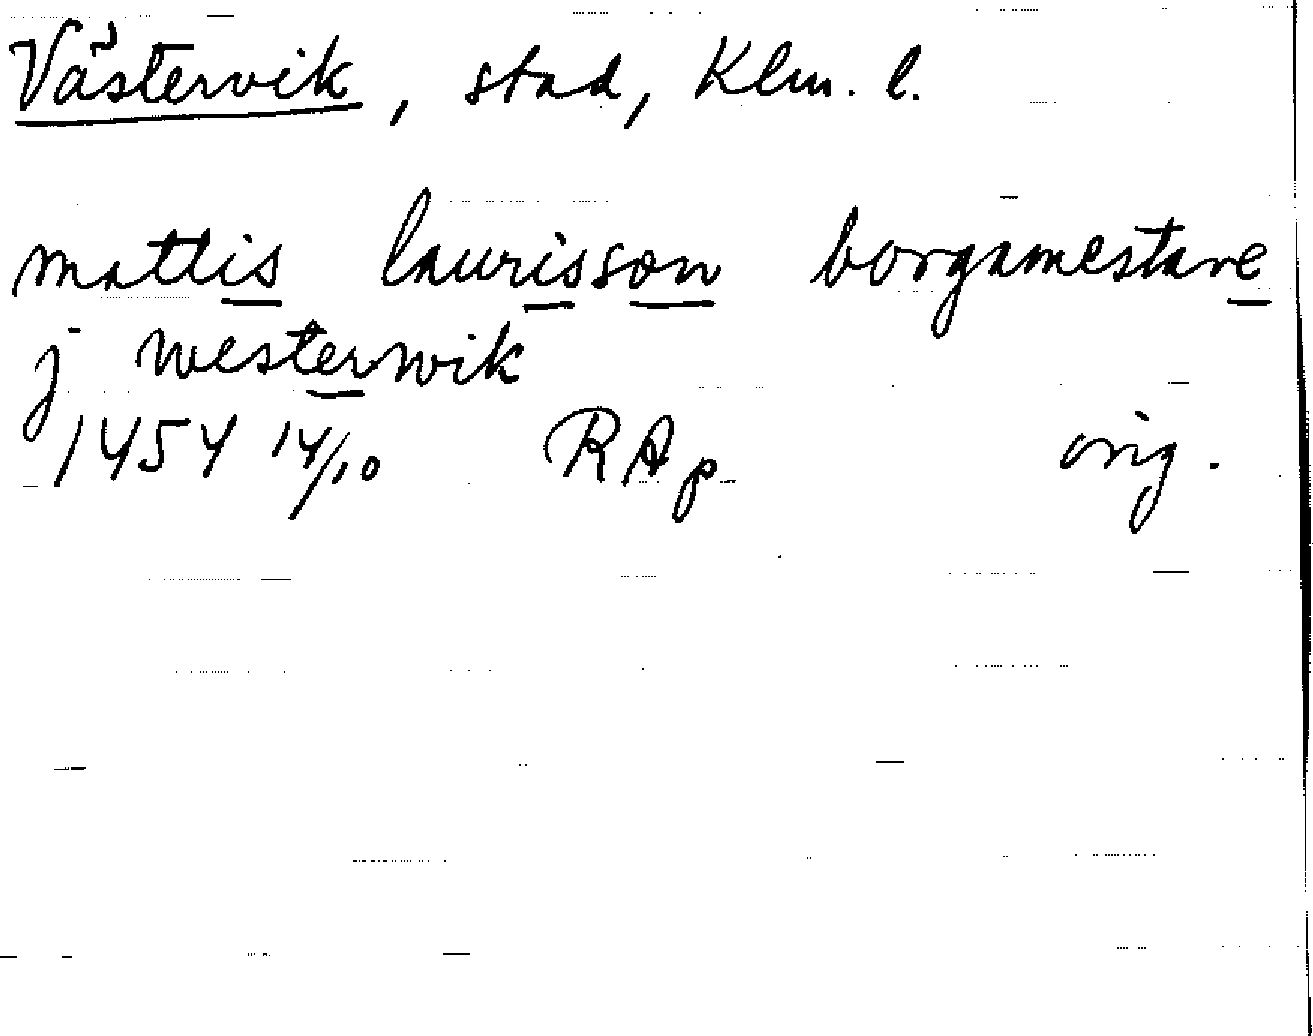 Västervik, stad, Klm. l.
mattis laurisson borgamestare
j westerwik
1454 14/10 RAp orig.